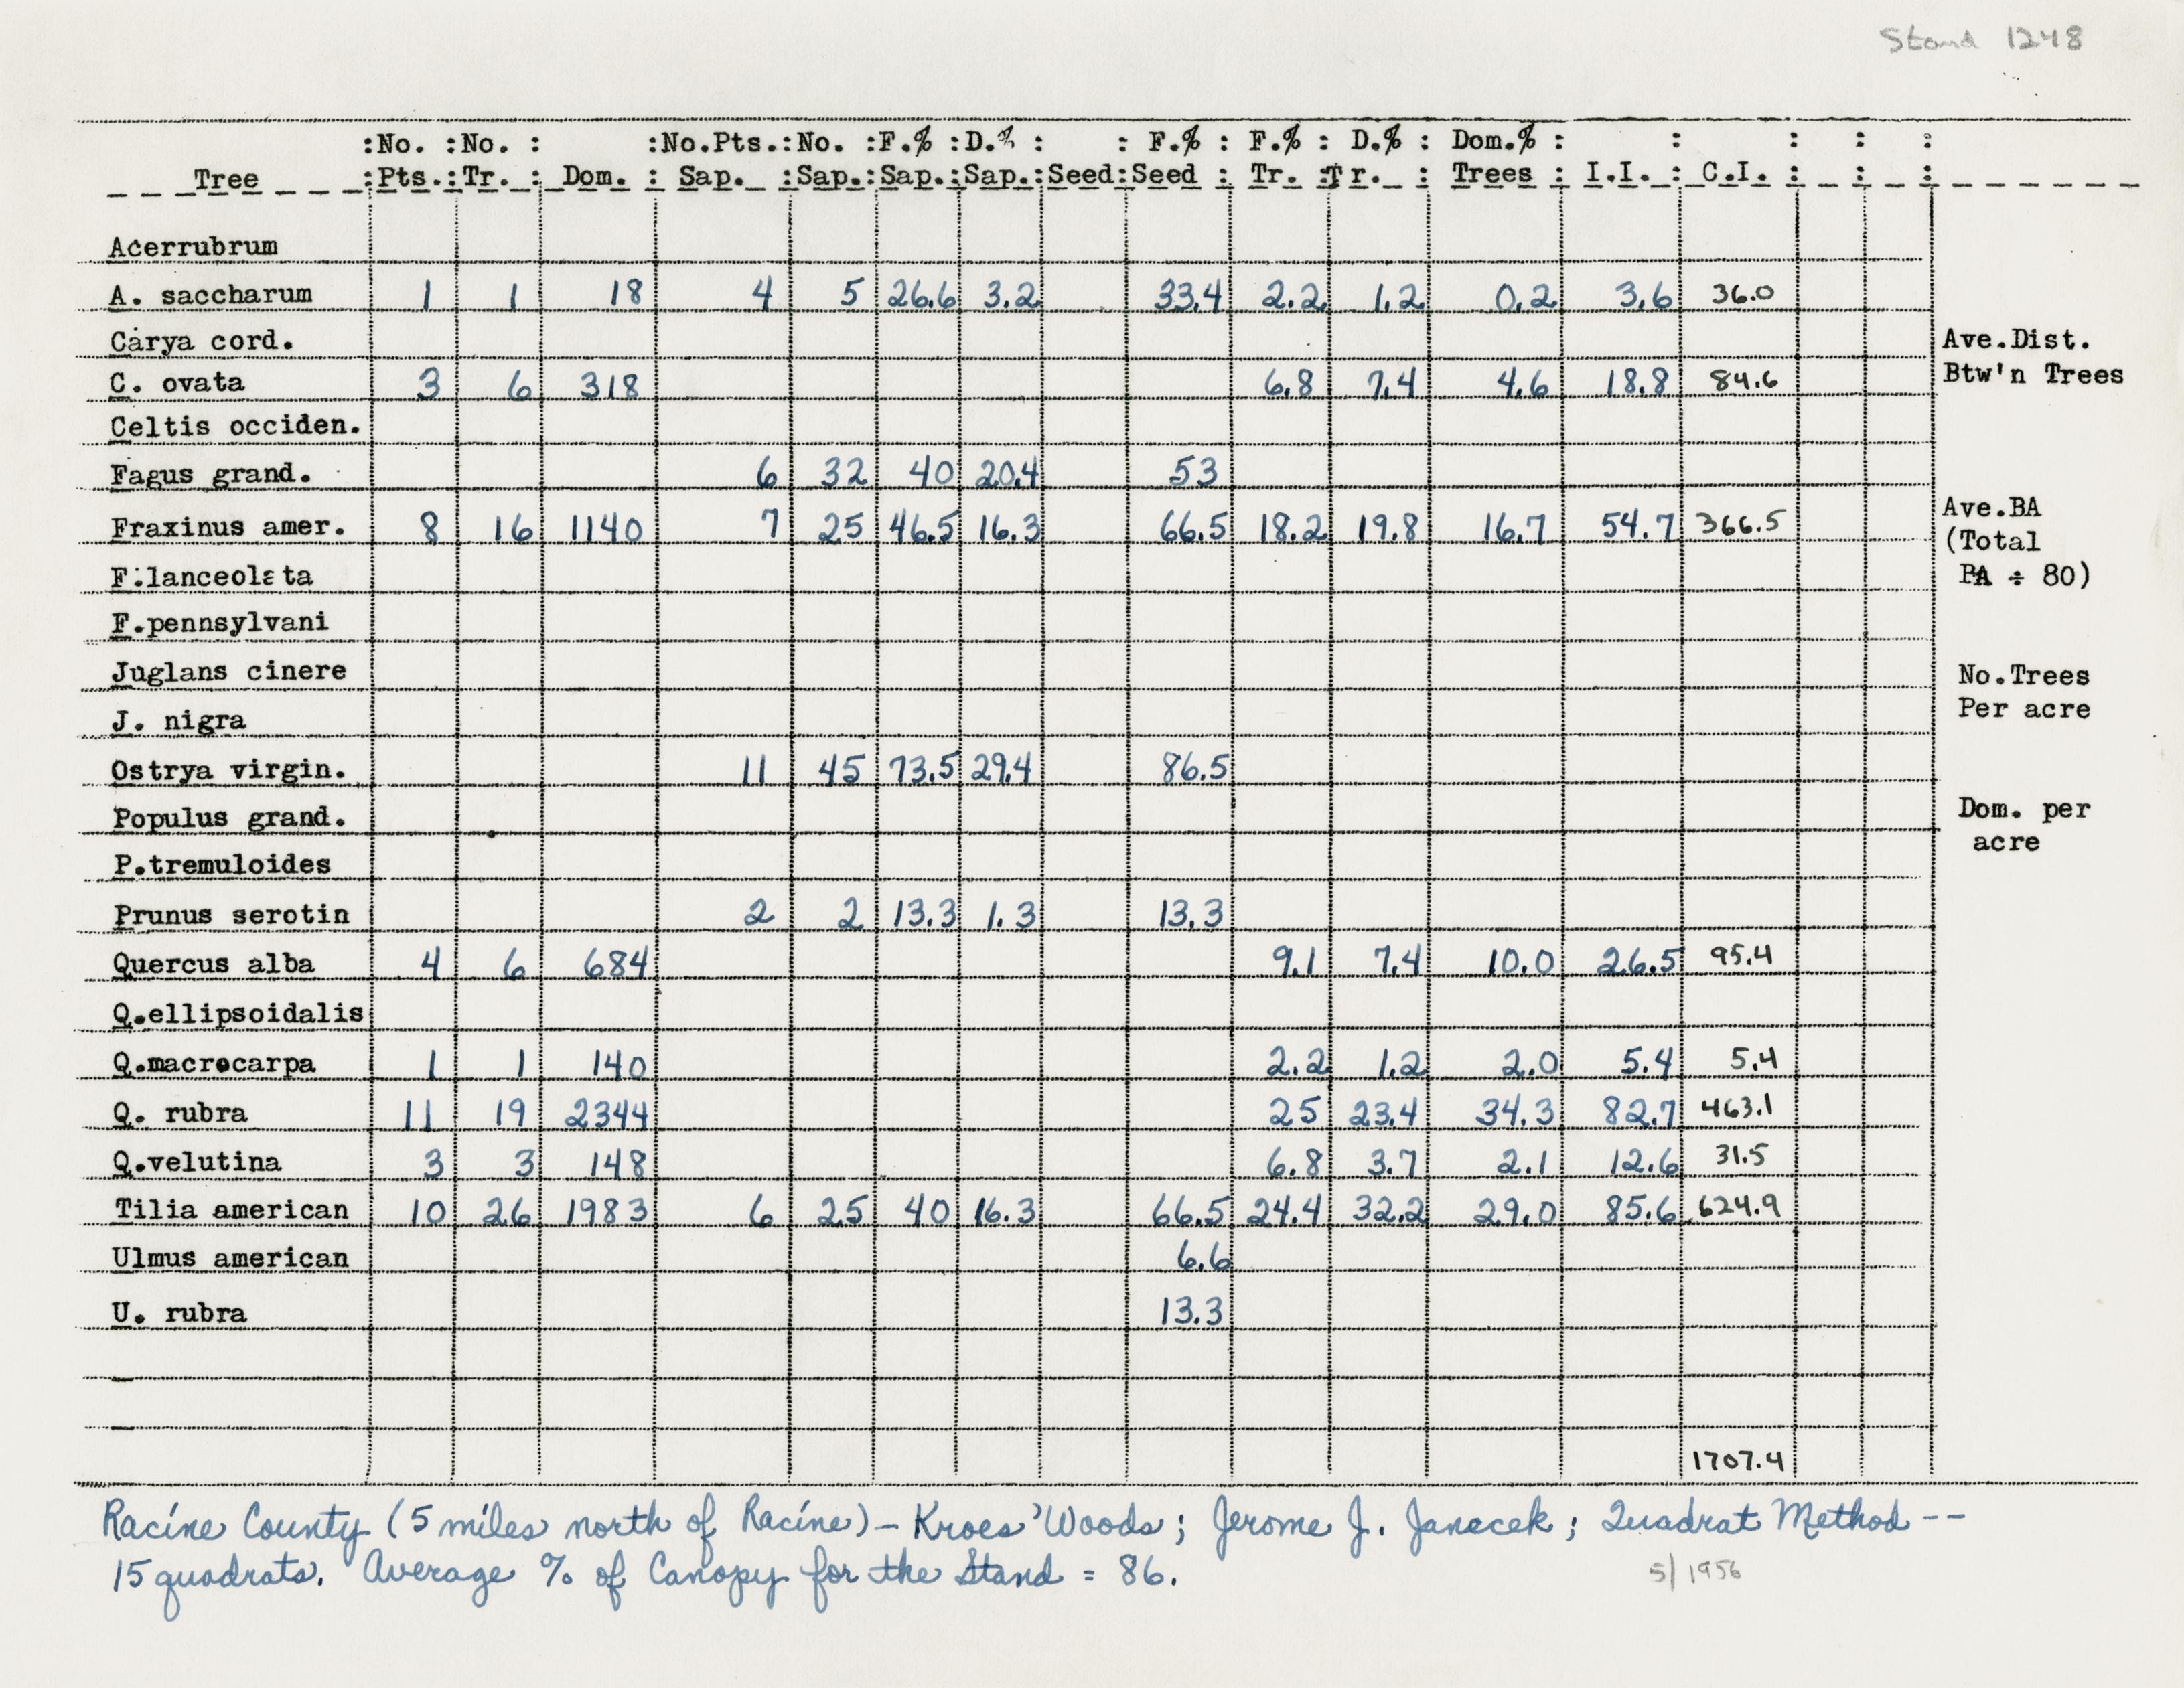 Stand 1248
:No. :No. : :No.Pts.:No. :F.% :D.% : : F.% : F.% : D.% : Dom.% : : : : :
Tree :Pts.:Tr. : Dom. : Sap. :Sap.:Sap.:Sap.:Seed:Seed : Tr. :Tr. : Trees : I.I. : C.I. : : :
Acerrubrum
A. saccharum 1 1 18 4 5 26.6 3.2 33.4 2.2 1.2 0.2 3.6 36.0
Carya cord.
C. ovata 3 6 318 6.8 7.4 4.6 18.8 84.6
Celtis occiden.
Fagus grand. 6 32 40 20.4 53
Fraxinus amer. 8 16 1140 7 25 46.5 16.3 66.5 18.2 19.8 16.7 54.7 366.5
F.lanceolata
F.pennsylvani
Juglans cinere
J. nigra
Ostrya virgin. 11 45 73.5 29.4 86.5
Populus grand.
P.tremuloides
Prunus serotin 2 2 13.3 1.3 13.3
Quercus alba 4 6 684 9.1 7.4 10.0 26.5 95.4
Q.ellipsoidalis
Q.macrocarpa 1 1 140 2.2 1.2 2.0 5.4 5.4
Q. rubra 11 19 2344 25 23.4 34.3 82.7 463.1
Q.velutina 3 3 148 6.8 3.7 2.1 12.6 31.5
Tilia american 10 26 1983 6 25 40 16.3 66.5 24.4 32.2 29.0 85.6 624.9
Ulmus american 6.6
U. rubra 13.3
1707.4
Ave.Dist.
Btw'n Trees
Ave.BA
(Total
BA ÷ 80)
No.Trees
Per acre
Dom. per
acre
Racine County (5 miles north of Racine) – Kroes' Woods; Jerome J. Janecek; Quadrat Method --
15 quadrats. Average % of Canopy for the Stand = 86.
5/1956